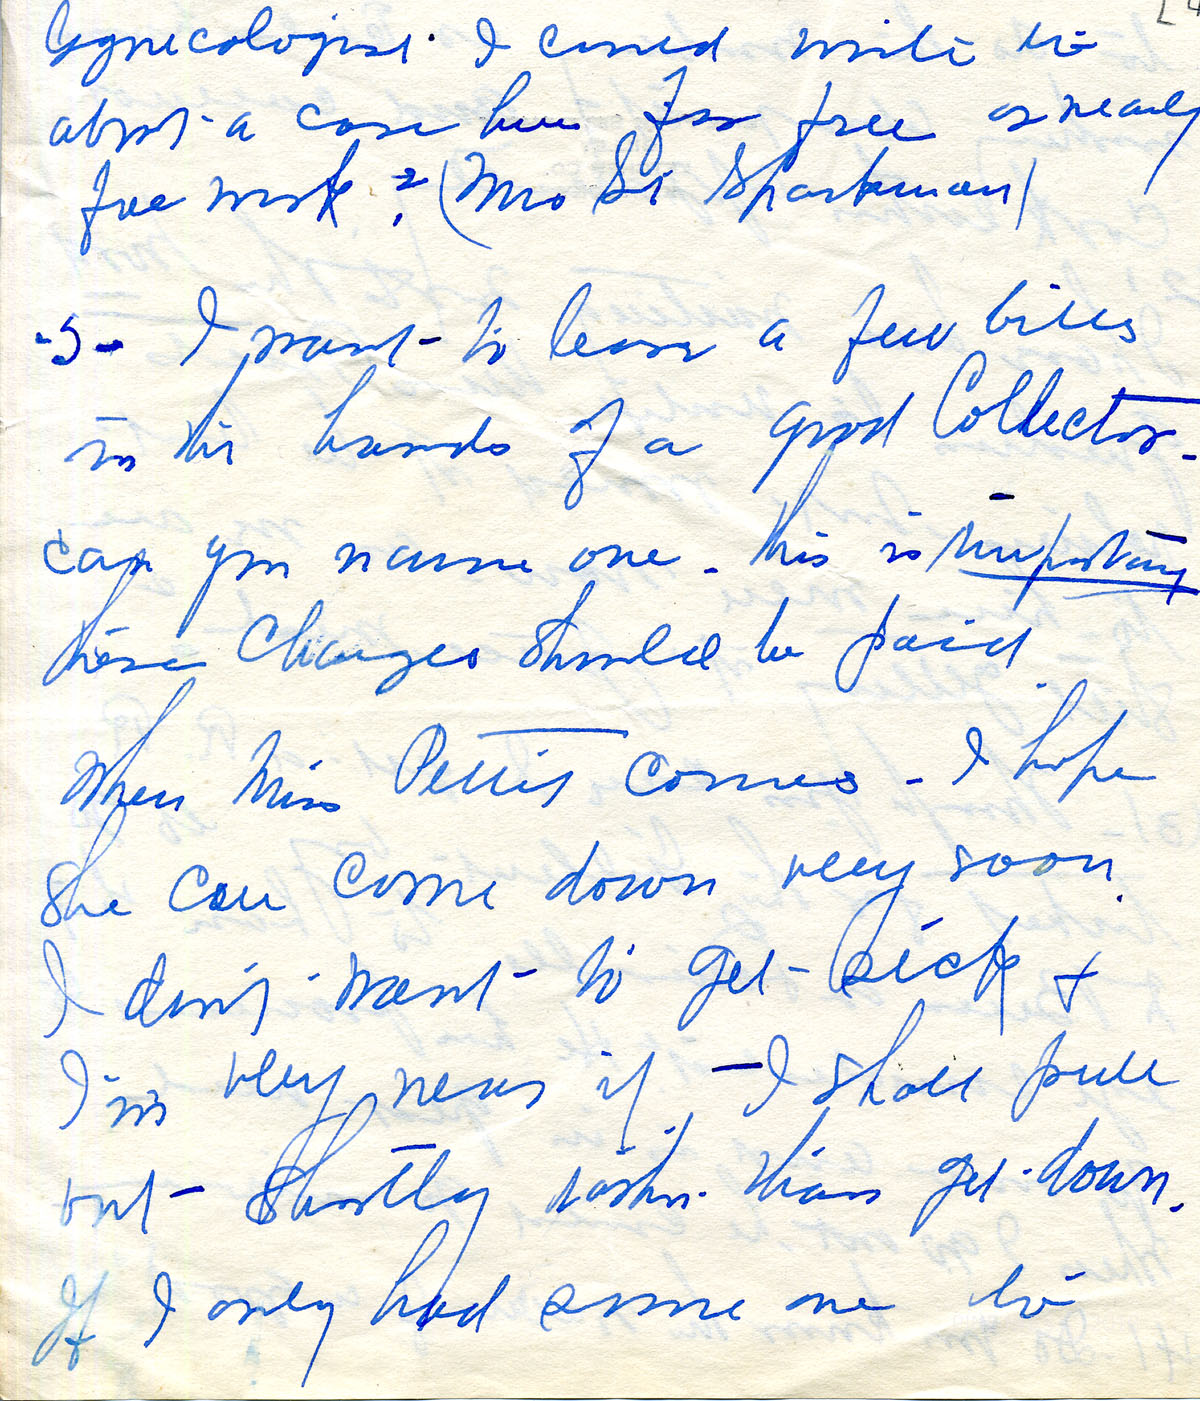 Gynecologist I could write to
about a case here for free or nearly
free work? (Mrs Si Sparkman)
-5- I want to leave a few bills
in the hands of a good Collector -
can you name one. This is important
these Charges should be paid
When Miss Pettit comes - I hope
She can come down very soon.
I don't want to get sick &
I'm very near it - I shall pull
out shortly rather than get down.
If I only had some one to